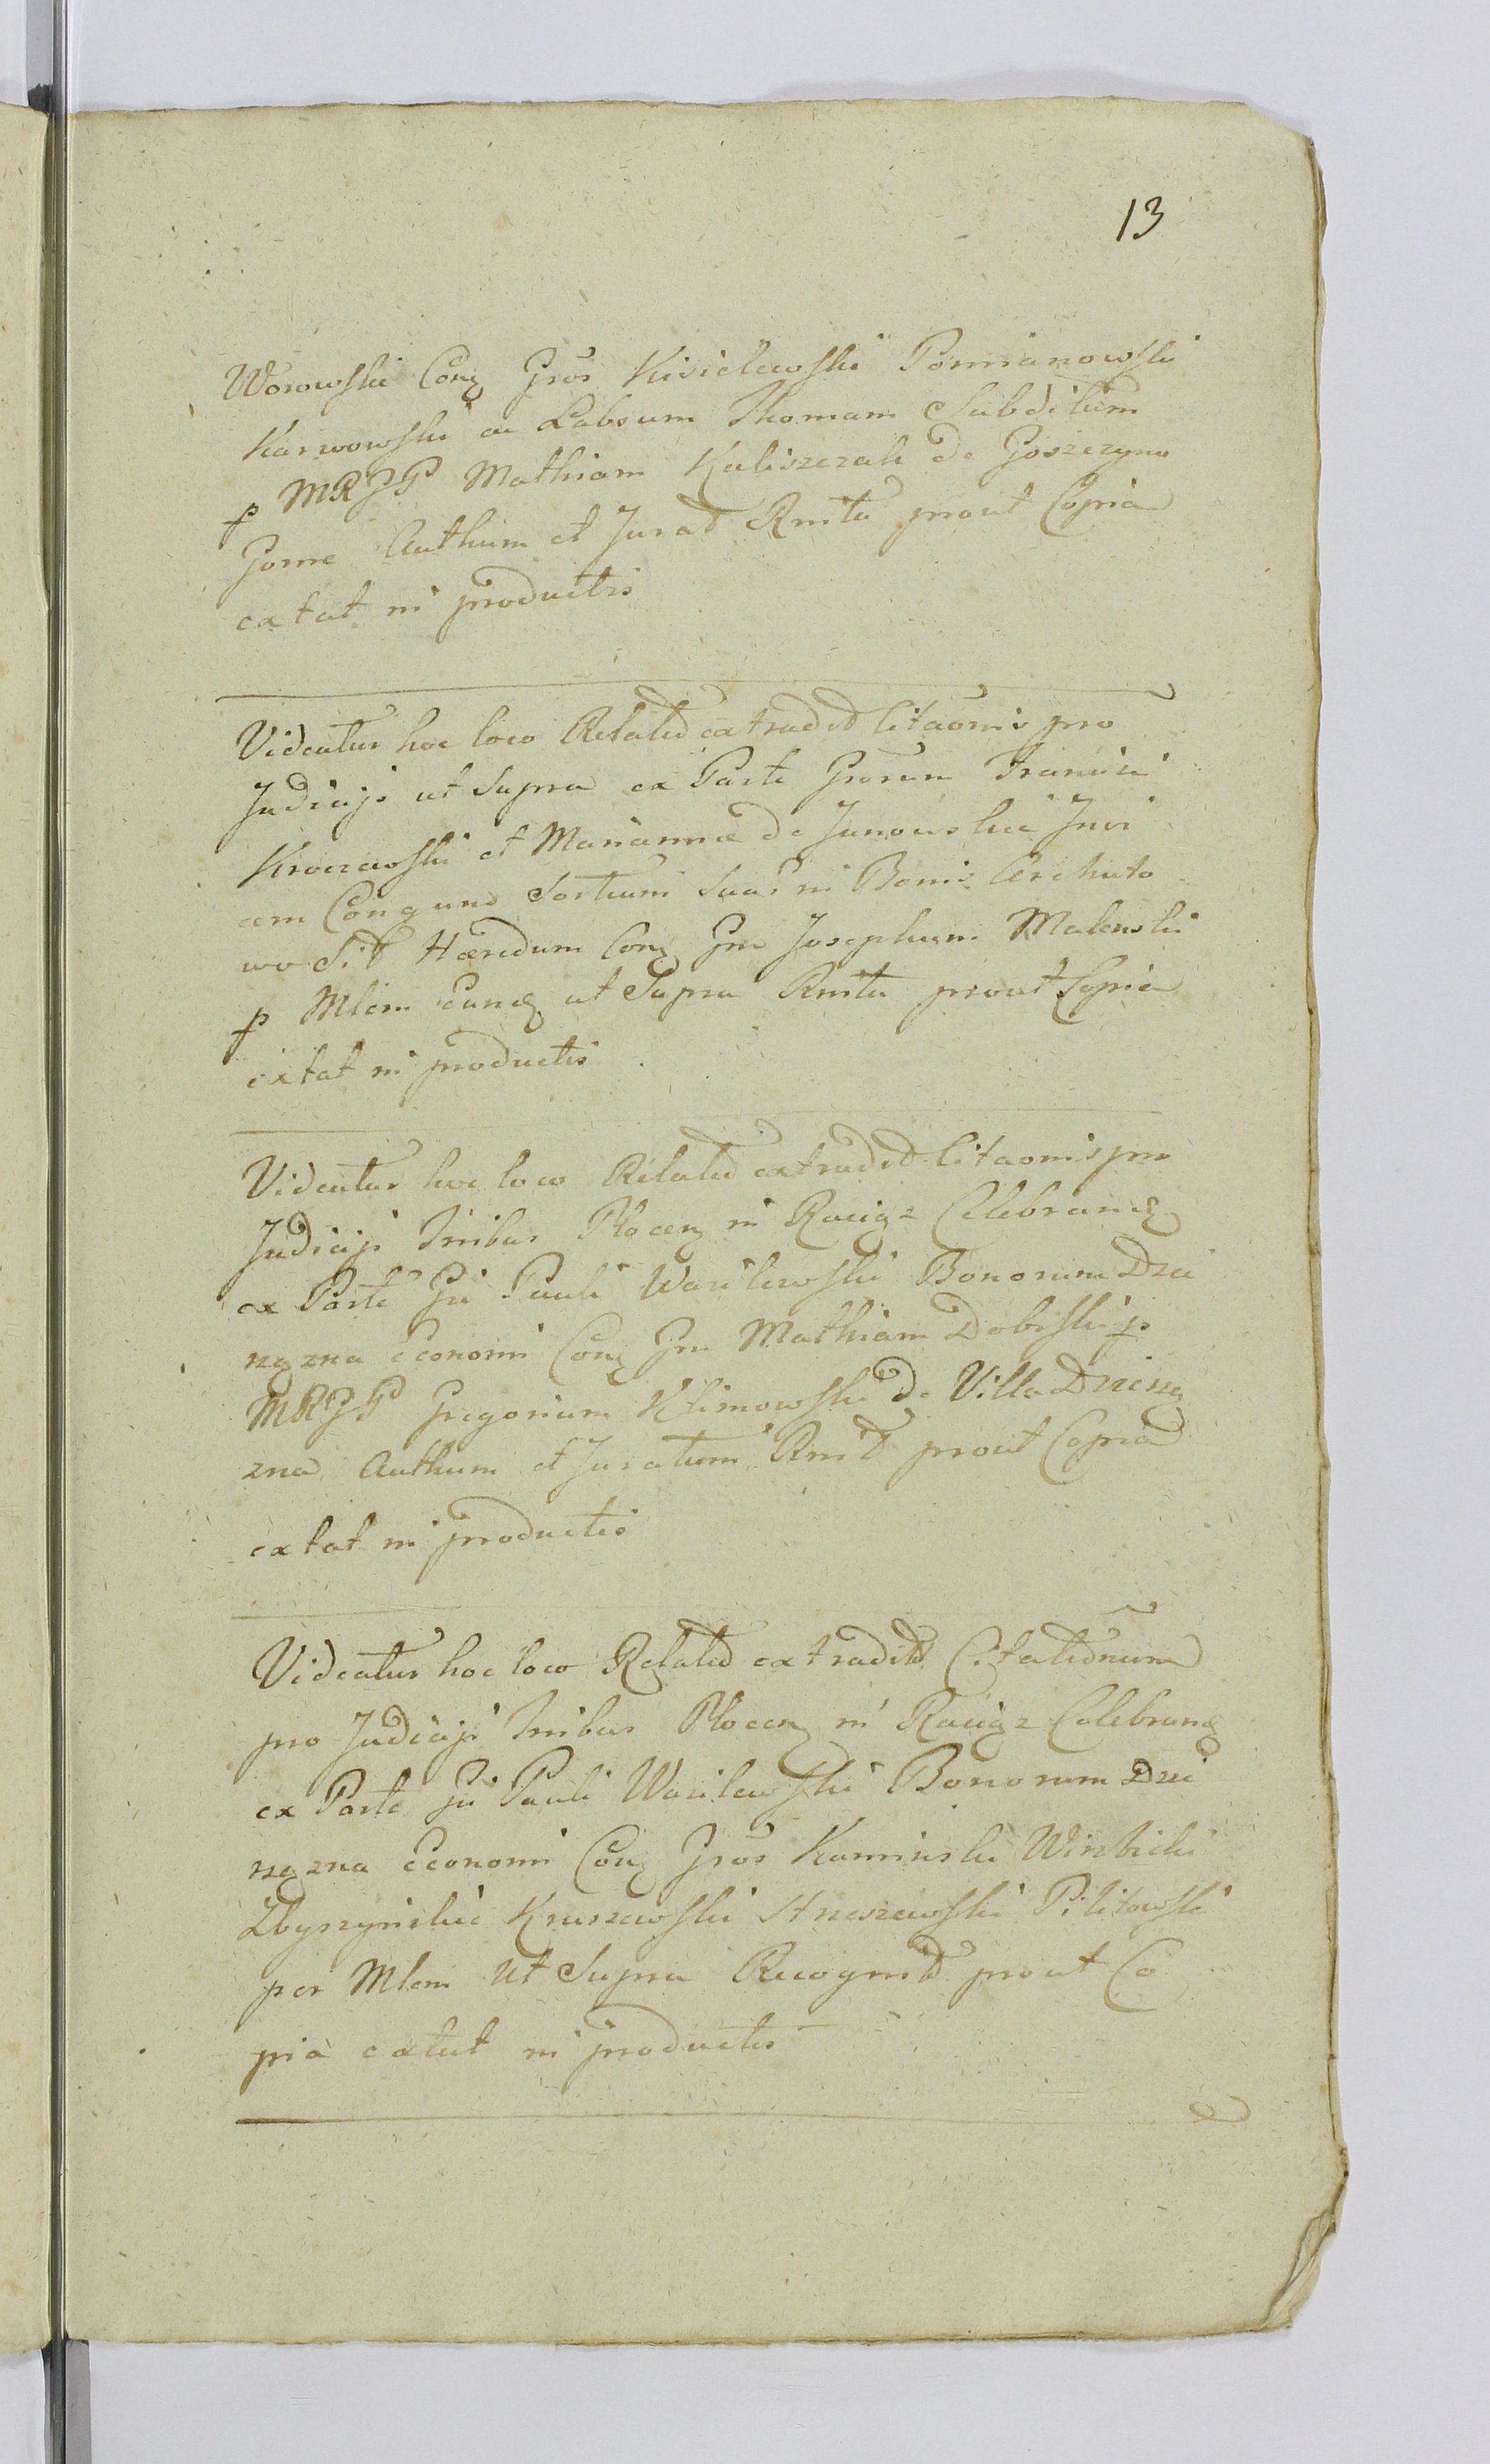 13
Worowskie Conq Gros Kisielewski Pomianowski
Karwowski ac Labsum Thomam Subditum
p MRGP Mathiam Kaliszczak de Goszczyno
Gorne Authum et Jurat Rmta prout Copia
extat in productis
Videatur hoc loco Relatio extradit Citaonis pro
Judicijs ut Supra ex Parte Grorum Francisci
Kroczewski et Mariannæ de Junowskie Invi
cem Conqum Sortium Suar in Bonis Archuto
wo Sit Hæredum Conq Gm Josephum Malewski
p Mlem Eunq ut Supra Rmta prout Copia
extat in productis
Videatur hoc loco Relatio extradit Citaonis pro
Judicijs Tribus Płocen in Raciąz Celebran
ex Parte Gi Pauli Wasilewski Bonorum Dzie
rzązna Economi Conq Gm Mathiam Dobiski p
MRGP Gregorium Klimowski de Villa Dzierzą
zna Authum et Juratum Rmt prout Copia
extat in productis
Videatur hoc loco Relatio extradit Citationum
pro Judicijs Tribus Płocen in Raciąz Celebran
ex Parte Gi Pauli Wasilewski Bonorum Dzie
rzązna Economi Conq Gros Kaminski Wierbicki
Zbyszynskie Kruszewski Strzeszewski Pilitowski
per Mlem Ut Supra Recognit prout Co
pia extat in productis